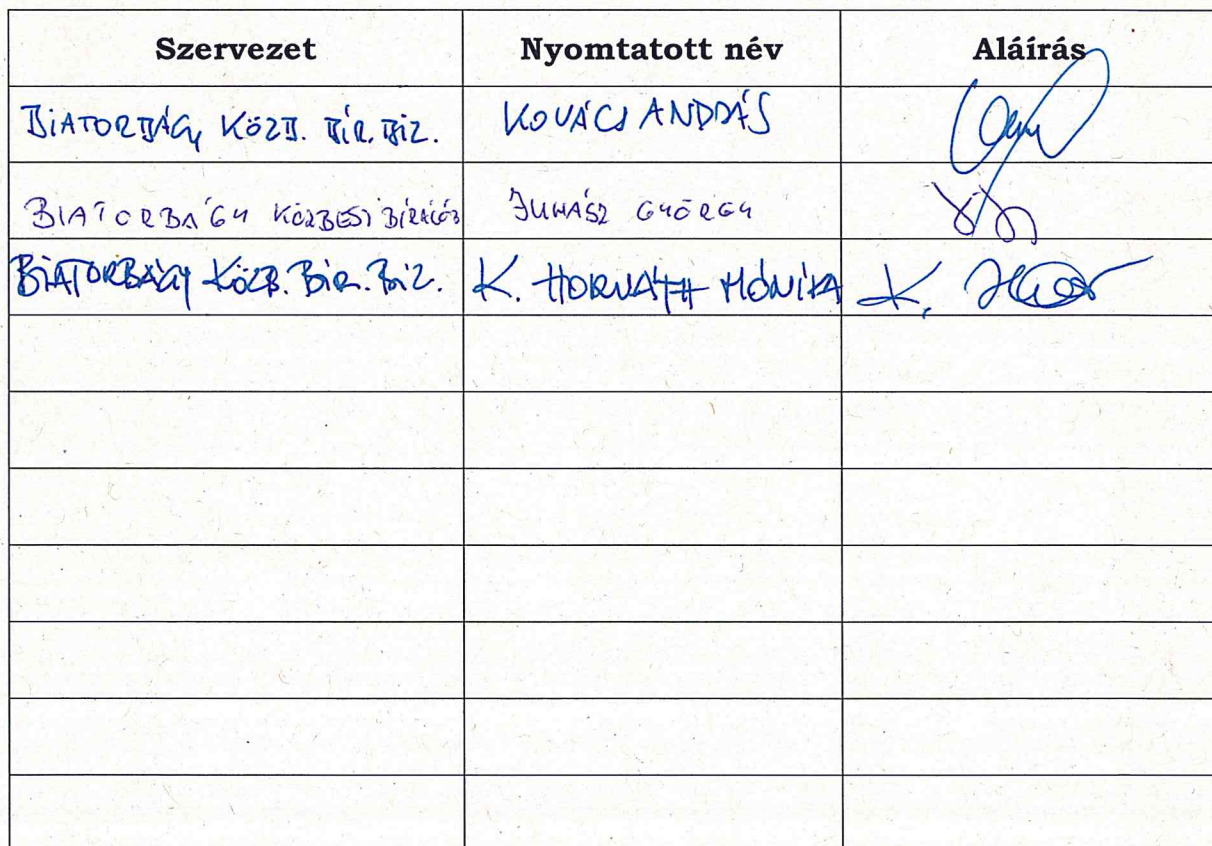 Szervezet Nyomtatott név Aláírás
BIATORBÁGY KÖZB. BÍR. BIZ. KOVÁCS ANDRÁS
BIATORBÁGY KÖZBESZ BÍRÁLÓB JUHÁSZ GYÖRGY
BIATORBÁGY KÖZB. BÍR. BIZ. K. HORVÁTH MÓNIKA K.